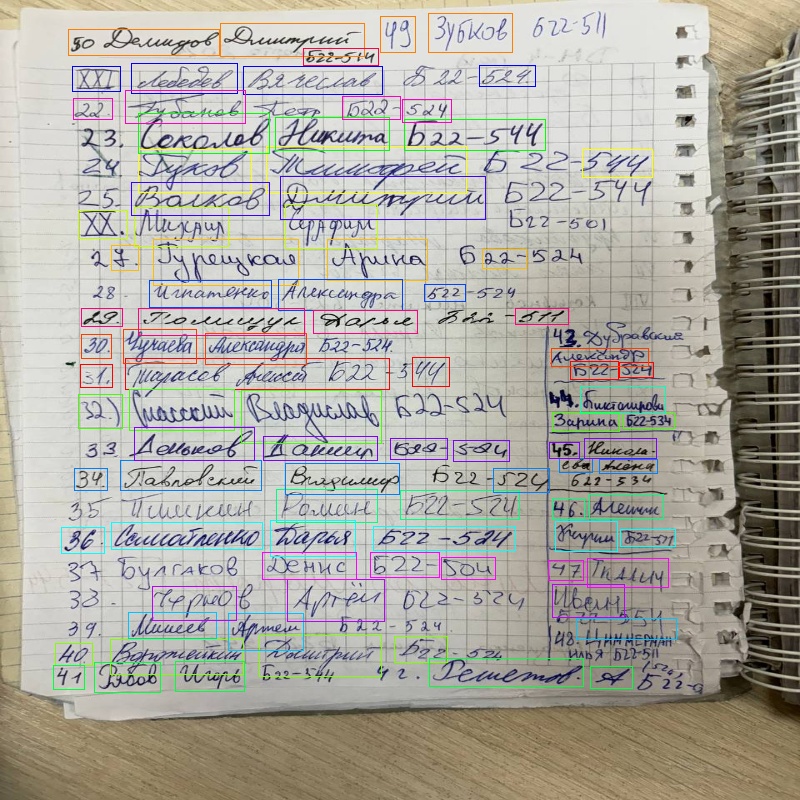 50 Демидов Дмитрий Б22-514
49 Зубков Б22-511
XXI Лебедев Вячеслав Б22-524.
22. Губанов Петр Б22-524
23. Соколов Никита Б22-544
24. Гуков Тимофей Б22-544
25. Волков Дмитрий Б22-544
XX. Михаил Серафим Б22-501
27. Турецкая Арина Б22-524
28. Игнатенко Александра Б22-524
29. Полищук Дарья Б22-511
30. Чучаева Александра Б22-524.
31. Тарасов Алексей Б22-544
32.) Спасский Владислав Б22-524
33. Деньков Даниил Б22-524
34. Павловский Владимир Б22-524
35 Пишкин Роман Б22-524
36. Самойленко Дарья Б22-524
37 Булгаков Денис Б22-504
38. Чернов Артём Б22-524
39. Мишеев Артем Б22-524.
40. Воротейкин Дмитрий Б22-524
41 Рябов Игорь Б22-544
42. Решетов. А Б22-
43. Дубравский
Александр
Б22-524
44. Биктагирова
Зарина Б22-534
45. Никола-
ева Алена
Б22-534
46. Алешин
Кирилл Б22-511
47 Ткалич
Иван
Б22-551
48. Циммерман
Илья Б22-511